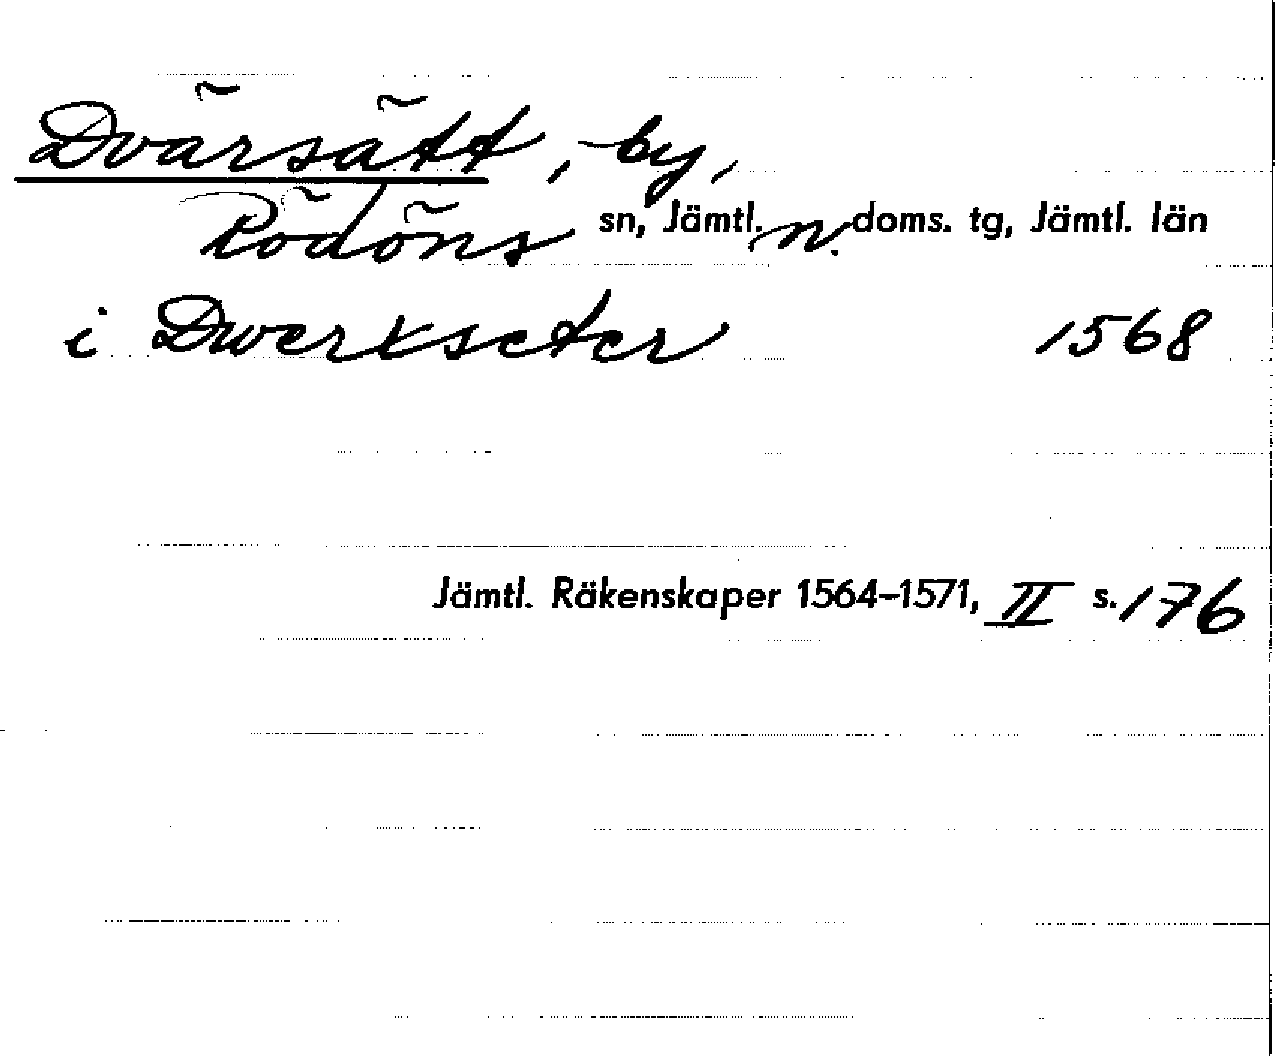 Dvärsätt, by,
Rödöns sn, Jämtl. n. doms. tg, Jämtl. län
i Dwerkseter 1568
Jämtl. Räkenskaper 1564–1571, II s. 176